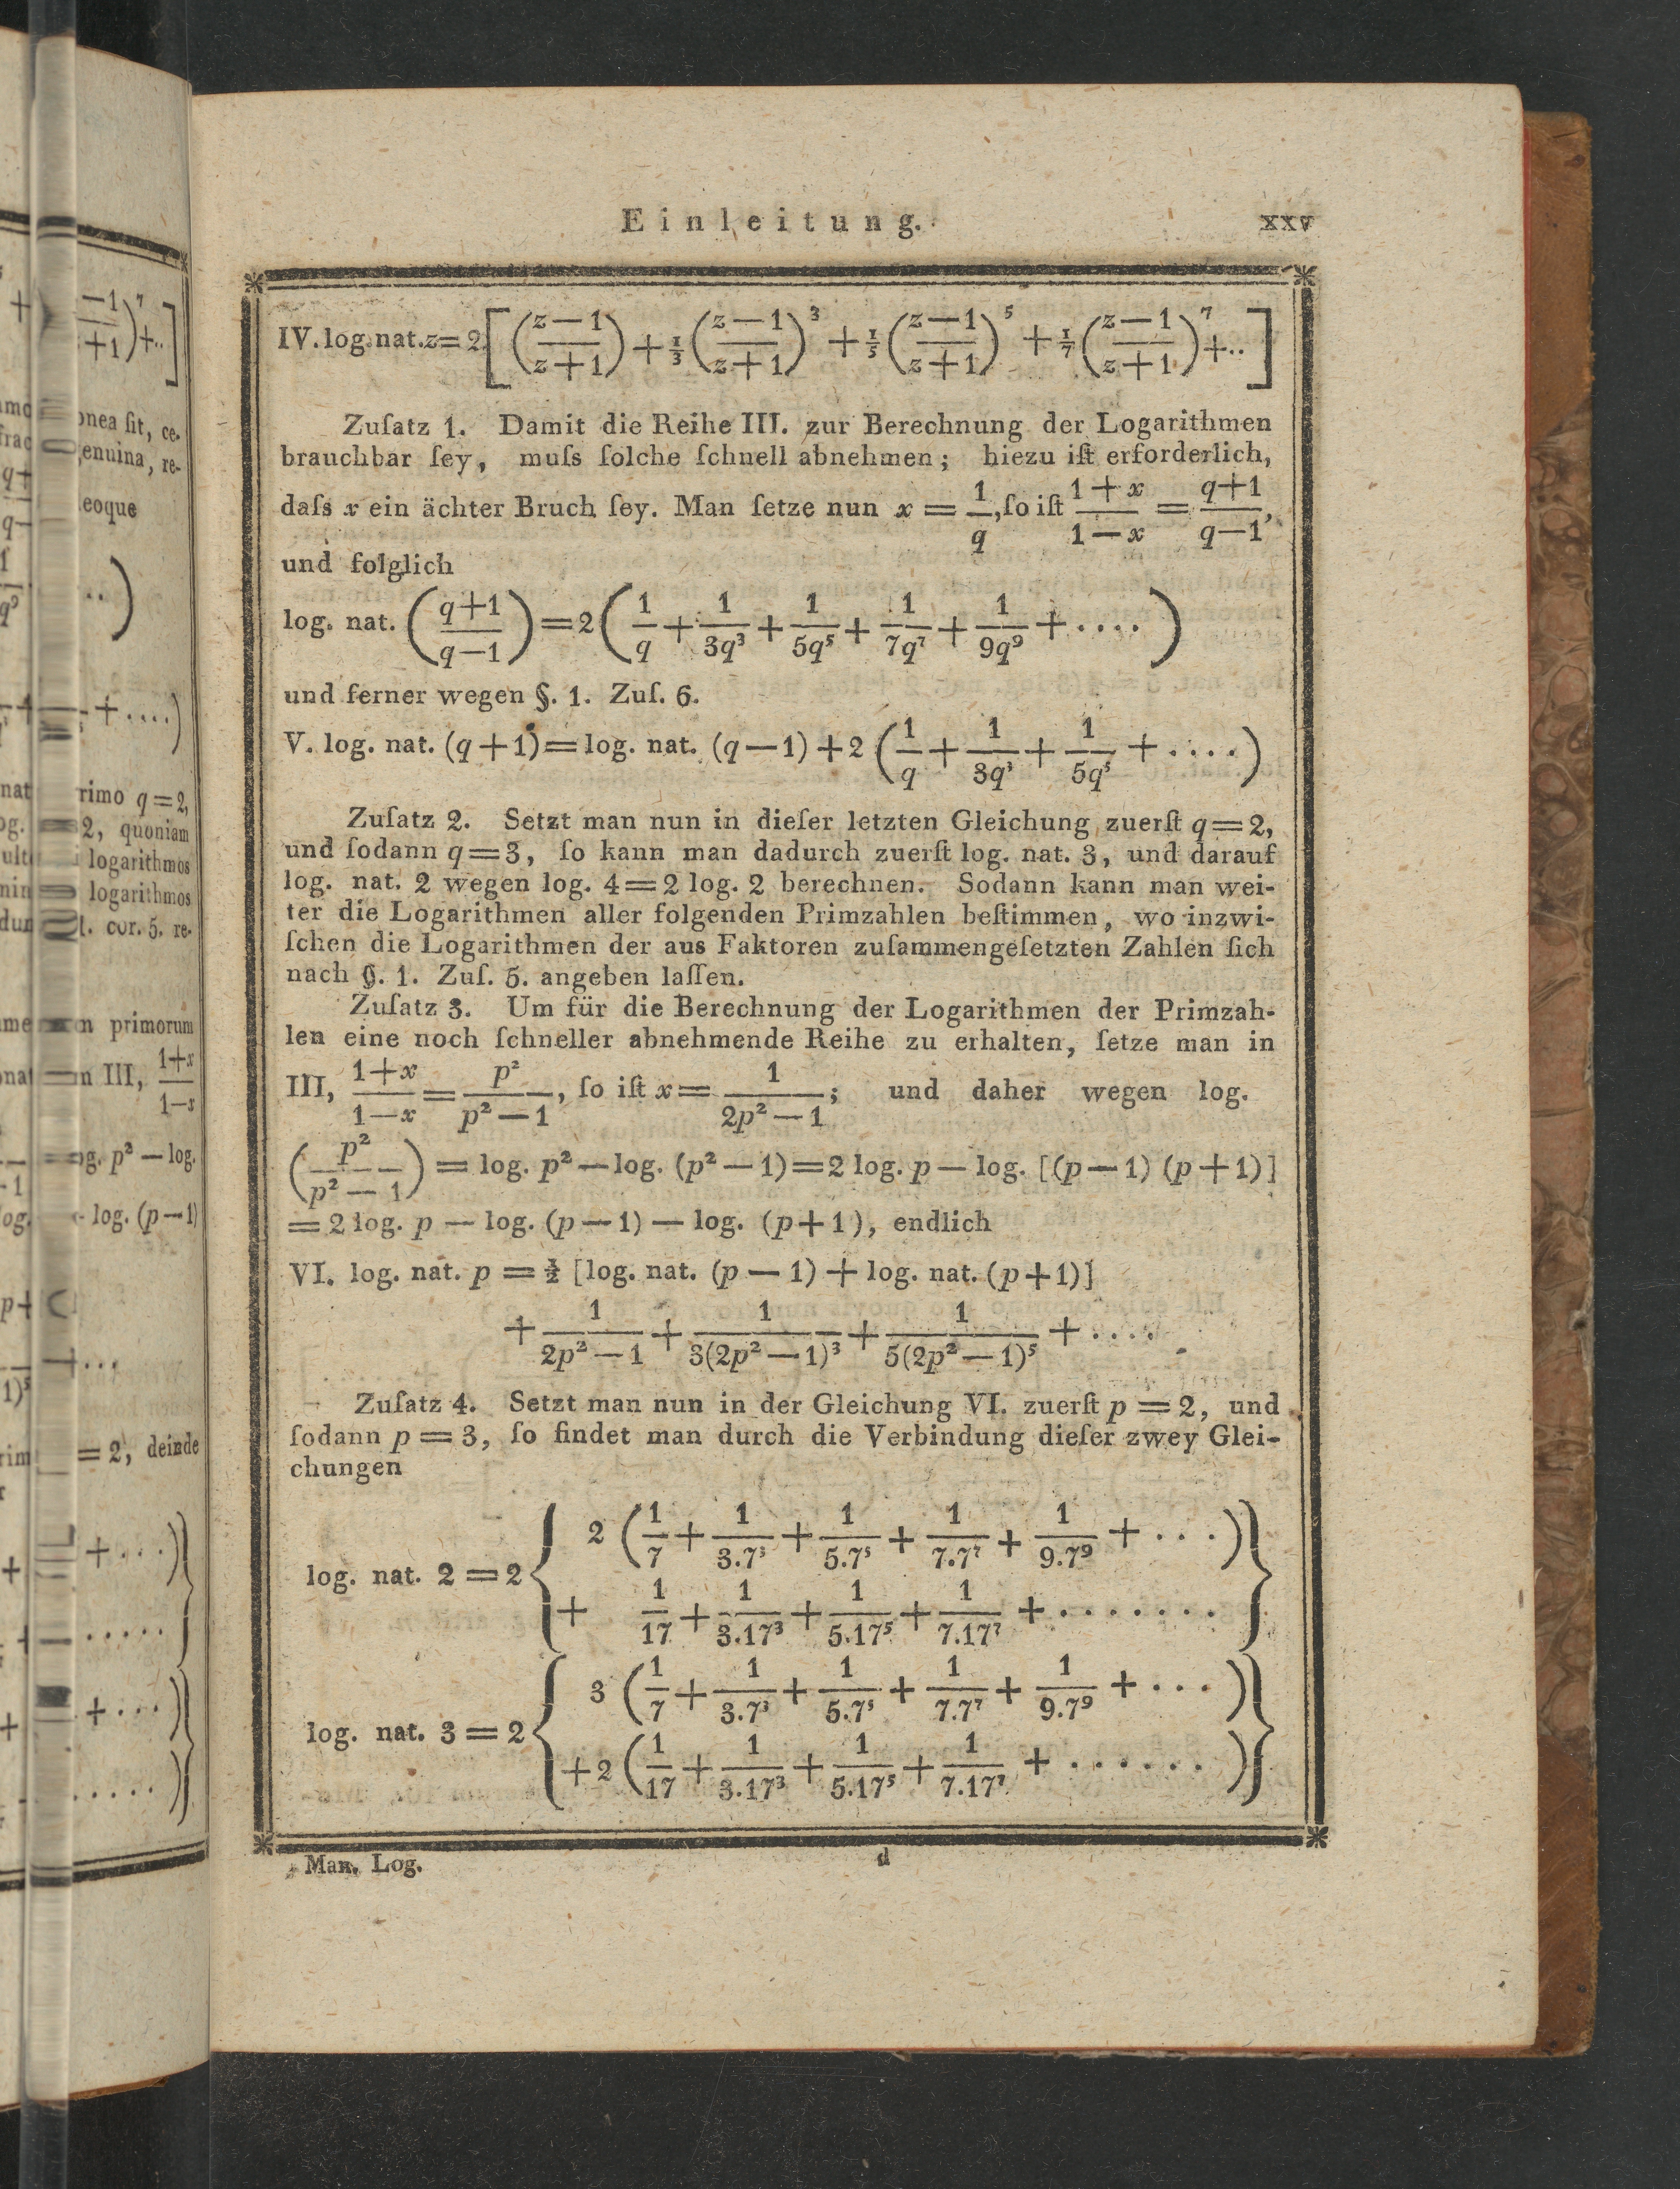 Einleitung. xxv
IV. log. nat. z = 2 [ ((z−1)/(z+1)) + ⅓ ((z−1)/(z+1))³ + ⅕ ((z−1)/(z+1))⁵ + ⅐ ((z−1)/(z+1))⁷ + .. ]
Zuſatz 1. Damit die Reihe III. zur Berechnung der Logarithmen
brauchbar ſey, muſs ſolche ſchnell abnehmen; hiezu iſt erforderlich,
daſs x ein ächter Bruch ſey. Man ſetze nun x = 1/q, ſo iſt (1+x)/(1−x) = (q+1)/(q−1),
und folglich
log. nat. ((q+1)/(q−1)) = 2 (1/q + 1/3q³ + 1/5q⁵ + 1/7q⁷ + 1/9q⁹ + ....)
und ferner wegen §. 1. Zuſ. 6.
V. log. nat. (q+1) = log. nat. (q−1) + 2 (1/q + 1/3q³ + 1/5q⁵ + ....)
Zuſatz 2. Setzt man nun in dieſer letzten Gleichung zuerſt q=2,
und ſodann q=3, ſo kann man dadurch zuerſt log. nat. 3, und darauf
log. nat. 2 wegen log. 4=2 log. 2 berechnen. Sodann kann man wei-
ter die Logarithmen aller folgenden Primzahlen beſtimmen, wo inzwi-
ſchen die Logarithmen der aus Faktoren zuſammengeſetzten Zahlen ſich
nach §. 1. Zuſ. 5. angeben laſſen.
Zuſatz 3. Um für die Berechnung der Logarithmen der Primzah-
len eine noch ſchneller abnehmende Reihe zu erhalten, ſetze man in
III, (1+x)/(1−x) = p²/(p²−1), ſo iſt x = 1/(2p²−1); und daher wegen log.
(p²/(p²−1)) = log. p² − log. (p²−1) = 2 log. p − log. [(p−1) (p+1)]
= 2 log. p − log. (p−1) − log. (p+1), endlich
VI. log. nat. p = ½ [log. nat. (p−1) + log. nat. (p+1)]
+ 1/(2p²−1) + 1/3(2p²−1)³ + 1/5(2p²−1)⁵ + ....
Zuſatz 4. Setzt man nun in der Gleichung VI. zuerſt p = 2, und
ſodann p = 3, ſo findet man durch die Verbindung dieſer zwey Glei-
chungen
log. nat. 2 = 2 { 2 (1/7 + 1/3.7³ + 1/5.7⁵ + 1/7.7⁷ + 1/9.7⁹ + ...)
+ 1/17 + 1/3.17³ + 1/5.17⁵ + 1/7.17⁷ + ........ }
log. nat. 3 = 2 { 3 (1/7 + 1/3.7³ + 1/5.7⁵ + 1/7.7⁷ + 1/9.7⁹ + ...)
+ 2 (1/17 + 1/3.17³ + 1/5.17⁵ + 1/7.17⁷ + .......) }
Man. Log. d